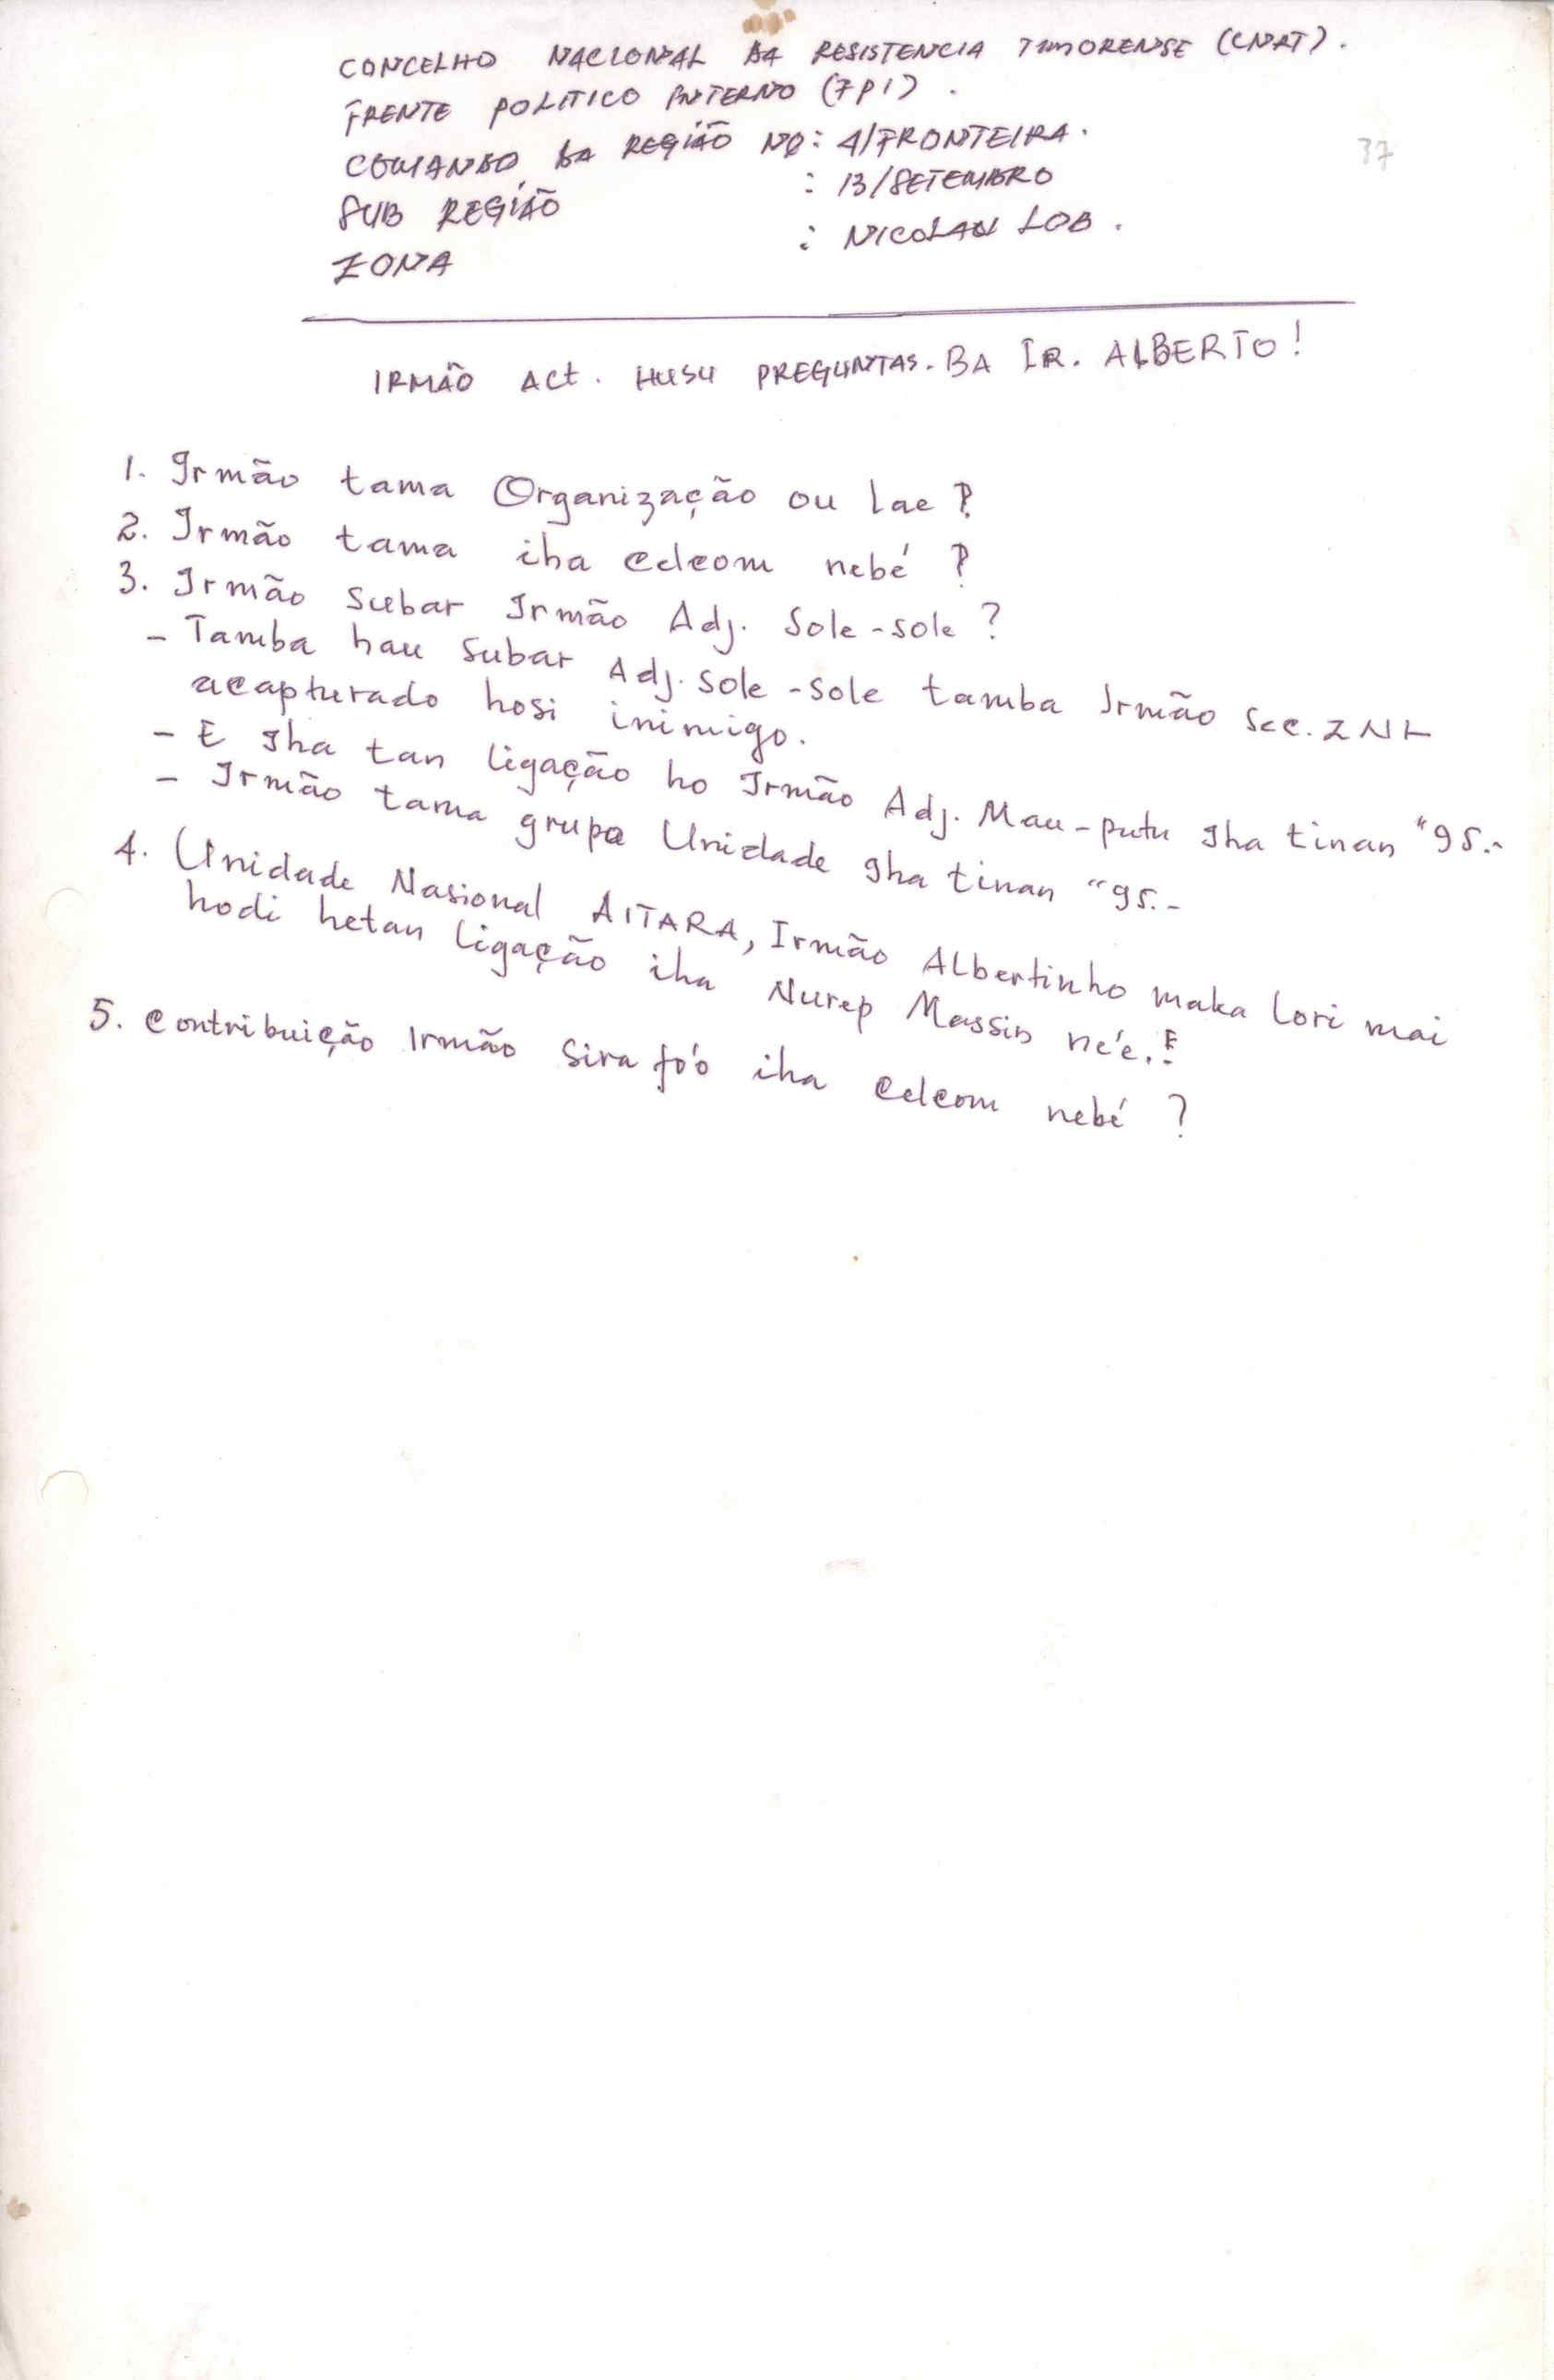 CONCELHO NACIONAL DA RESISTENCIA TIMORENSE (CNRT).
FRENTE POLITICO INTERNO (FPI).
COMANDO DA REGIÃO Nº: 4/FRONTEIRA.
SUB REGIÃO : 13/SETEMBRO
ZONA : NICOLAU LOB.
37
IRMÃO ACt. HUSU PREGUNTAS. BA IR. ALBERTO!
1. Irmão tama Organização ou lae?
2. Irmão tama iha celcom nebé?
3. Irmão Subar Irmão Adj. Sole-sole?
- Tamba hau Subar Adj. Sole-Sole tamba Irmão Sec. ZNL
acapturado hosi inimigo.
- E Iha tan ligação ho Irmão Adj. Mau-putu Iha tinan "95.-
- Irmão tama grupo Unidade Iha tinan "95.-
4. Unidade Nasional AITARA, Irmão Albertinho maka lori mai
hodi hetan ligação iha Nurep Massin né'e.!
5. Contribuição Irmão Sira fó'o iha Celcom nebé?